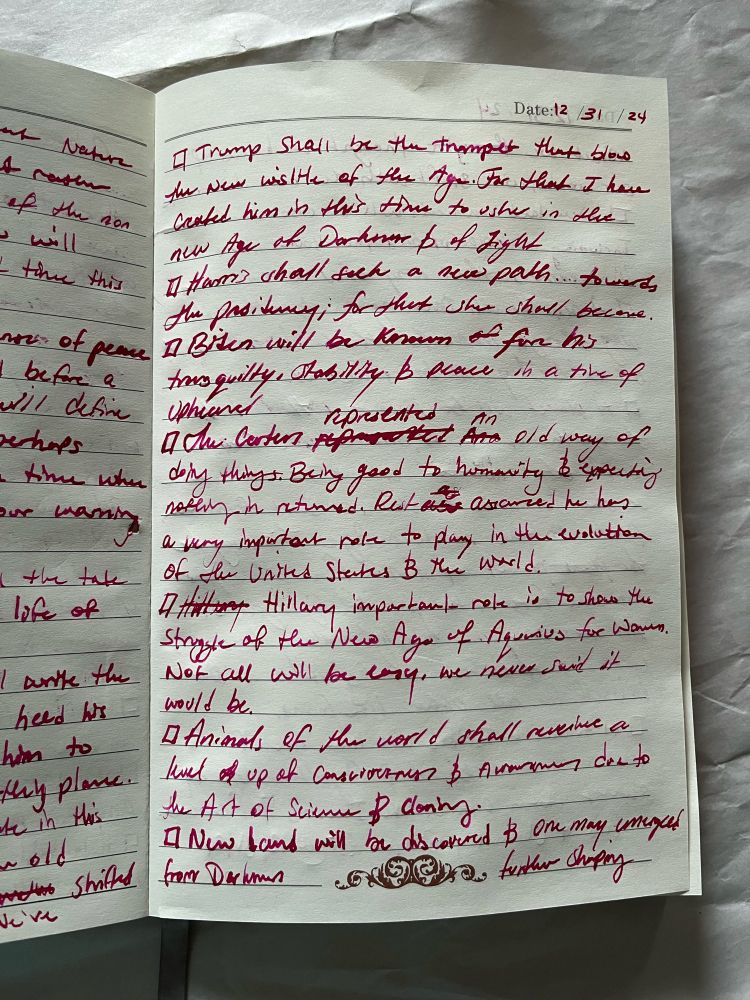 Date: 12 / 31 / 24
□ Trump shall be the trumpet that blow
the New wisltle of the Age. For that I have
created him in this time to usher in the
new Age of Darkness & of Light
□ Harris shall seek a new path... towards
the presidency; for that she shall become.
□ Biden will be known for his
tranquilty, stability & peace in a time of
upheavel
□ The Carters represented An old way of
doing things. Being good to humanity & expecting
nothing in returned. Rest as assured he has
a very important role to play in the evolution
of the United States & the world.
□ Hillary important role is to show the
struggle of the New Age of Aquarius for Women.
Not all will be easy, we never said it
would be.
□ Animals of the world shall receive a
level up of Consciousness & Awareness due to
the Art of Science & cloning.
□ New Land will be discovered & one may emerged
from Darkness further Shaping
ut Nature
of the non
will
time this
of peace
before a
will define
perhaps
time when
our warning
the tale
life of
write the
heed his
him to
plane.
in this
old
shifted
We've